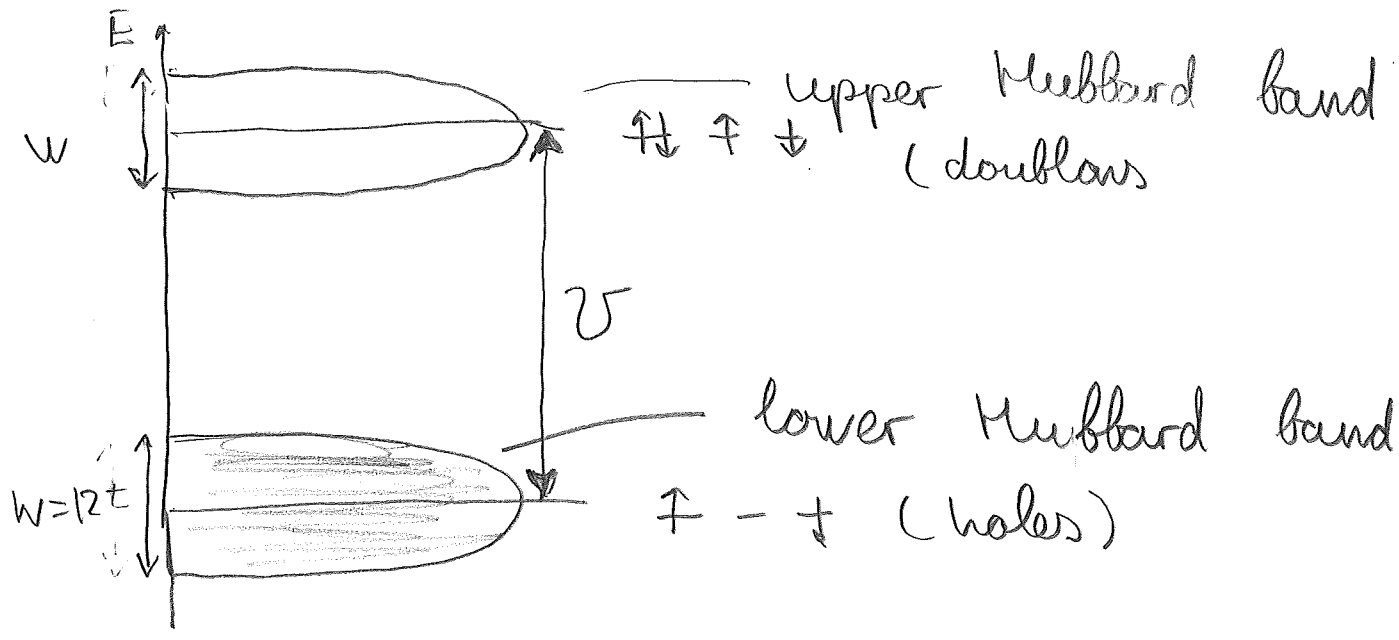 E
W
upper Hubbard band
↑↓ ↑ ↓
(doublons
U
lower Hubbard band
W=12t
↑ - ↓ (holes)